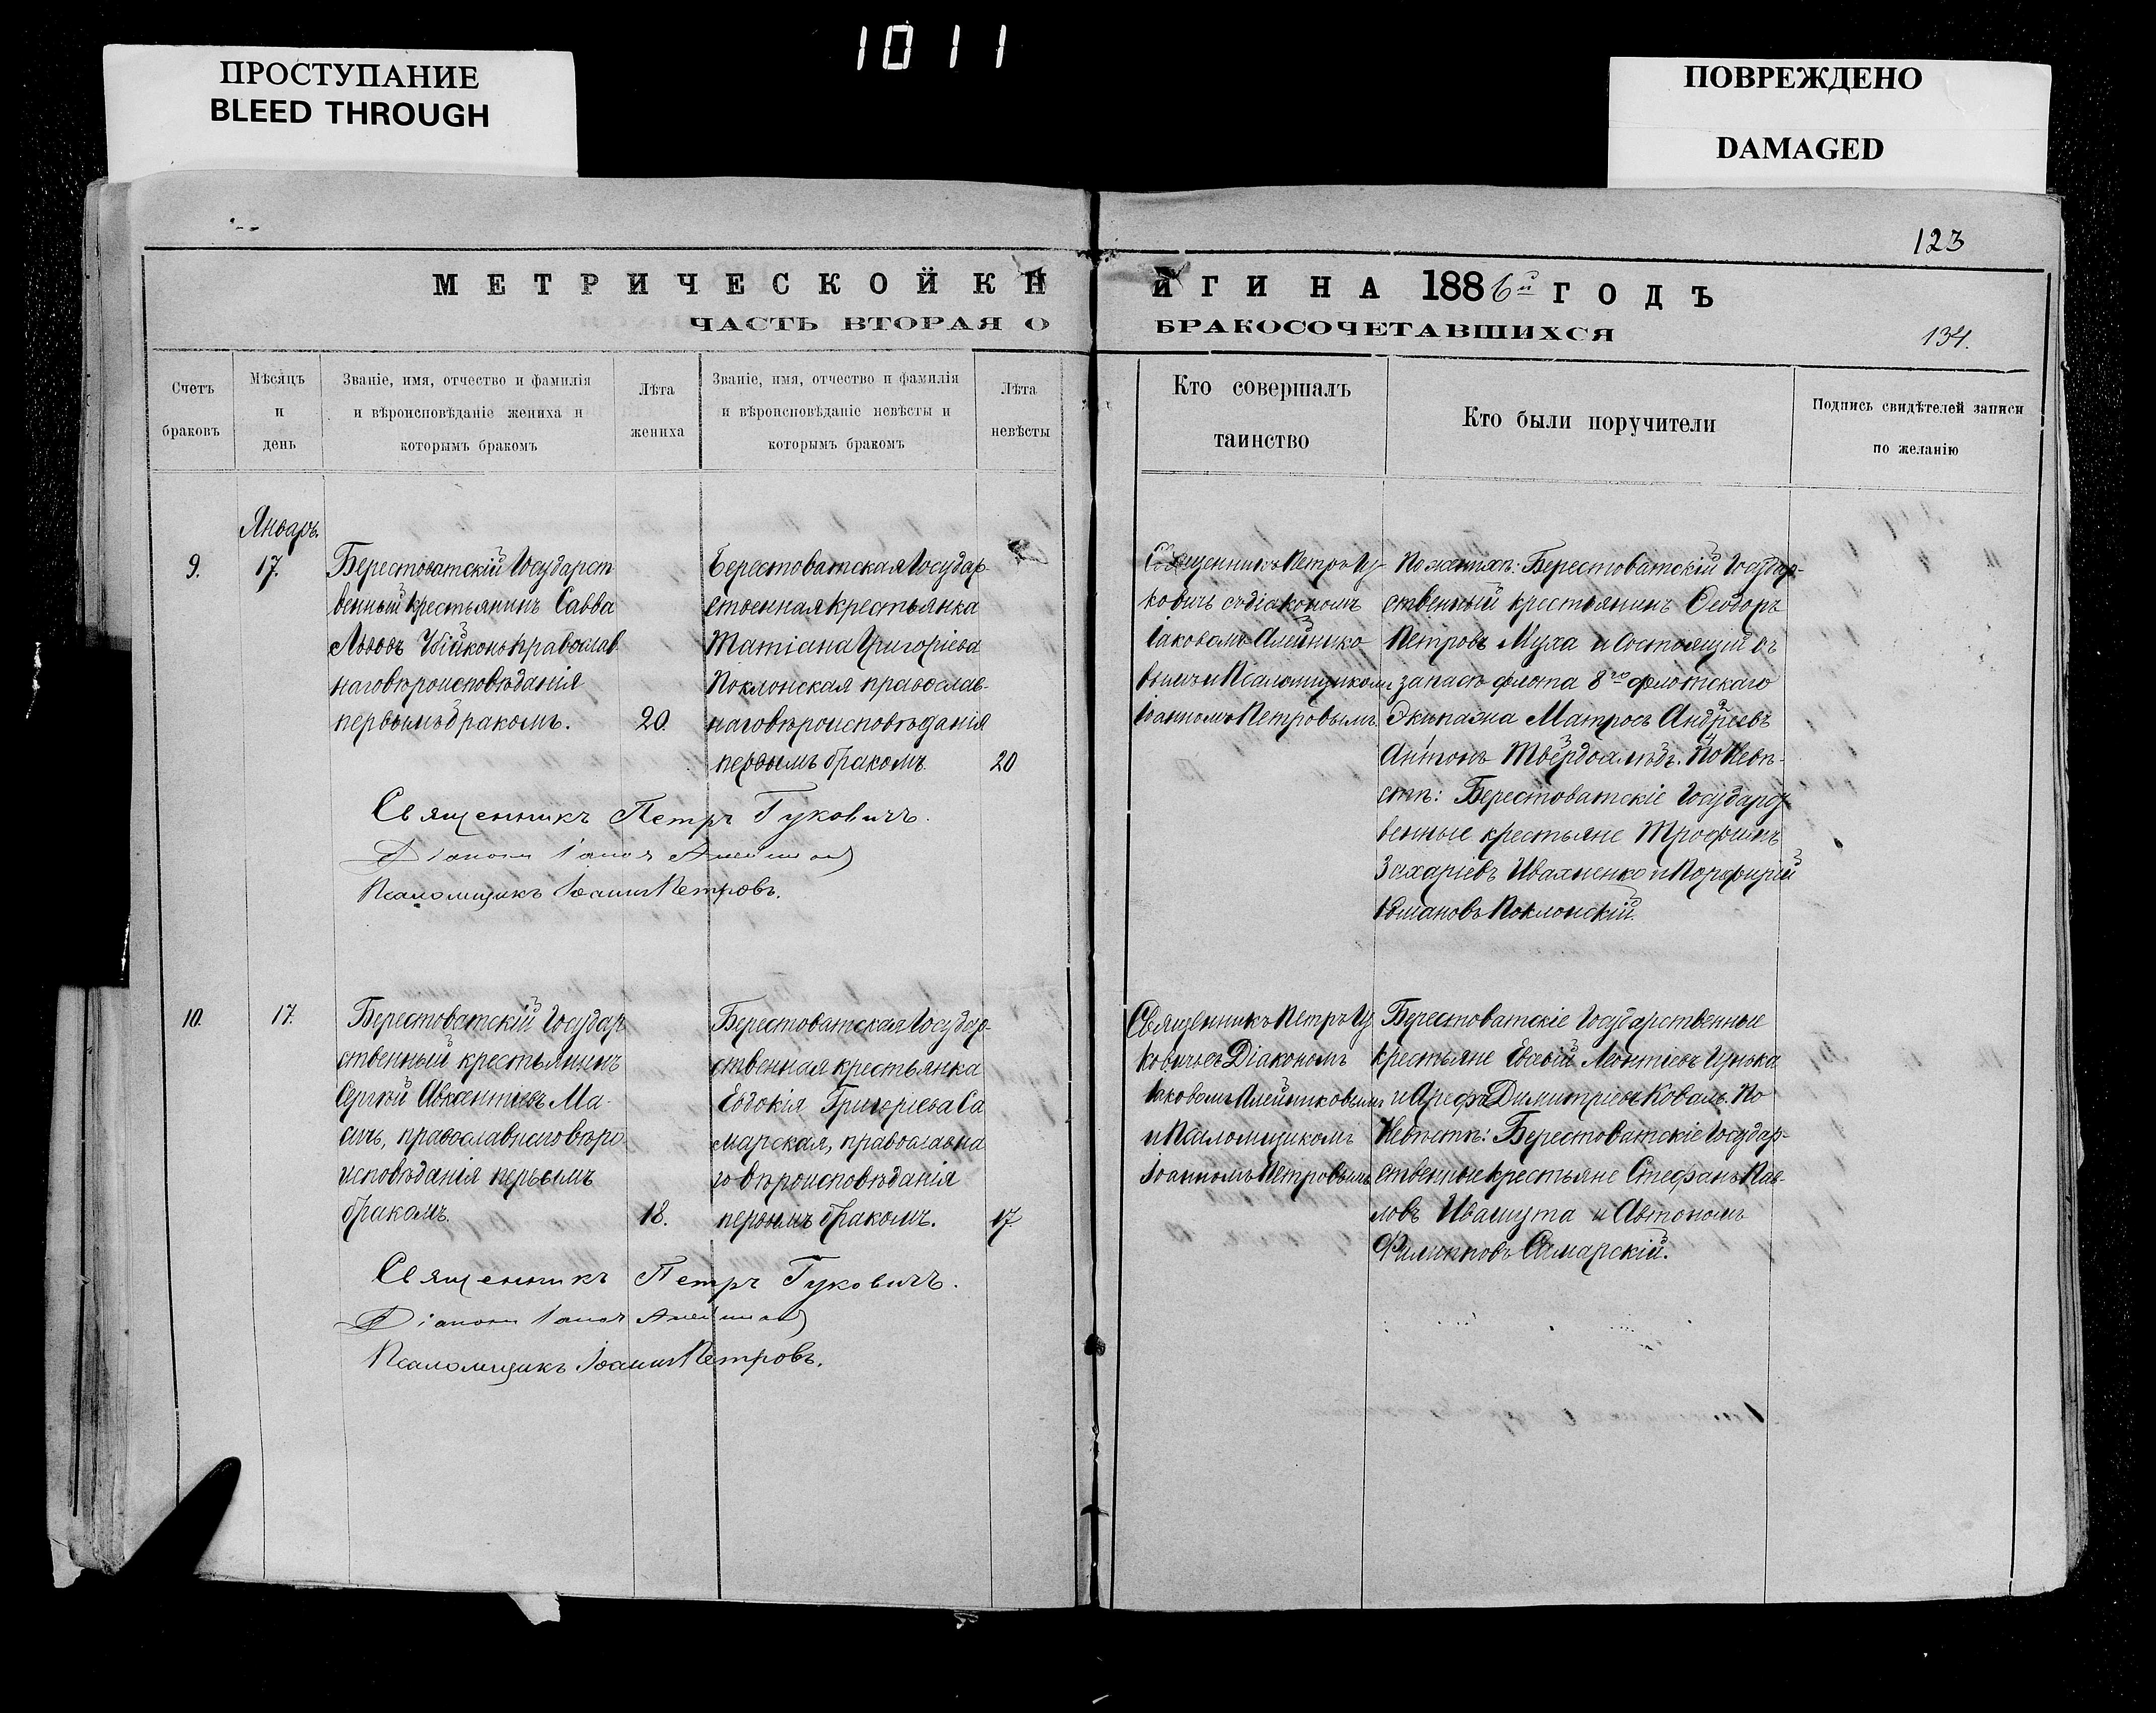 1011
ПРОСТУПАНИЕ
BLEED THROUGH
ПОВРЕЖДЕНО
DAMAGED
123
МЕТРИЧЕСКОЙ КНИГИ НА 1886й ГОДЪ
ЧАСТЬ ВТОРАЯ О БРАКОСОЧЕТАВШИХСЯ
134.
Счетъ
браковъ
Мѣсяцъ
и
день
Званіе, имя, отчество и фамилія
и вѣроисповѣданіе жениха и
которымъ бракомъ
Лѣта
жениха
Званіе, имя, отчество и фамилія
и вѣроисповѣданіе невѣсты и
которымъ бракомъ
Лѣта
невѣсты
Кто совершалъ
таинство
Кто были поручители
Подпись свидѣтелей записи
по желанію
Январь.
9.
17.
Берестоватскій Государст
венный крестьянинъ Савва
Убійконь православ
наго вѣроисповѣданія
первымъ бракомъ.
20.
Берестоватская Государ
ственная крестьянка
Татіана Григоріева
Поклонская православ-
наго вѣроисповѣданія
первымъ бракомъ.
20
Священникъ Петръ Гу-
ковичъ съ діакономъ
Іаковомъ Алейнико
вымъ и Псаломщикомъ
Іоанномъ Петровымъ.
По женихѣ: Берестоватскій Государ-
ственный крестьянинъ Ѳеодоръ
Петровъ Муха и Состоящій въ
запасѣ флота 8го флотскаго
Экипажа Матросъ Андреевъ
Антонъ Твердохлѣбъ. По Невѣ-
стѣ: Берестоватскіе Государст
венные крестьяне Трофимъ
Захаріевъ Ивахненко и Порфирій
Поклонскій.
Священникъ Петръ Гуковичъ.
Діаконъ Іаковъ Алейниковъ
Псаломщикъ Іоаннъ Петровъ.
10.
17.
Берестоватскій Государ
ственный крестьянинъ
Сергѣй Авксентіевъ Ма-
сичъ, православнаго вѣро
исповѣданія первымъ
бракомъ.
18.
Берестоватская Государ-
ственная крестьянка
Евдокія Григоріева Са
марская, православна
го вѣроисповѣданія
первымъ бракомъ.
17.
Священникъ Петръ Гу
ковичъ съ Діакономъ
Іаковомъ Алейниковымъ
и Псаломщикомъ
Іоанномъ Петровымъ
Берестоватскіе Государственные
крестьяне Евсевій Леонтіевъ
и Арефа Димитріевъ Коваль. По
Невѣстѣ: Берестоватскіе Государ-
ственные крестьяне Стефанъ Пав-
ловъ Ивашута и Автономъ
Филипповъ Самарскій.
Священникъ Петръ Гуковичъ.
Діаконъ Іаковъ Алейниковъ
Псаломщикъ Іоаннъ Петровъ.